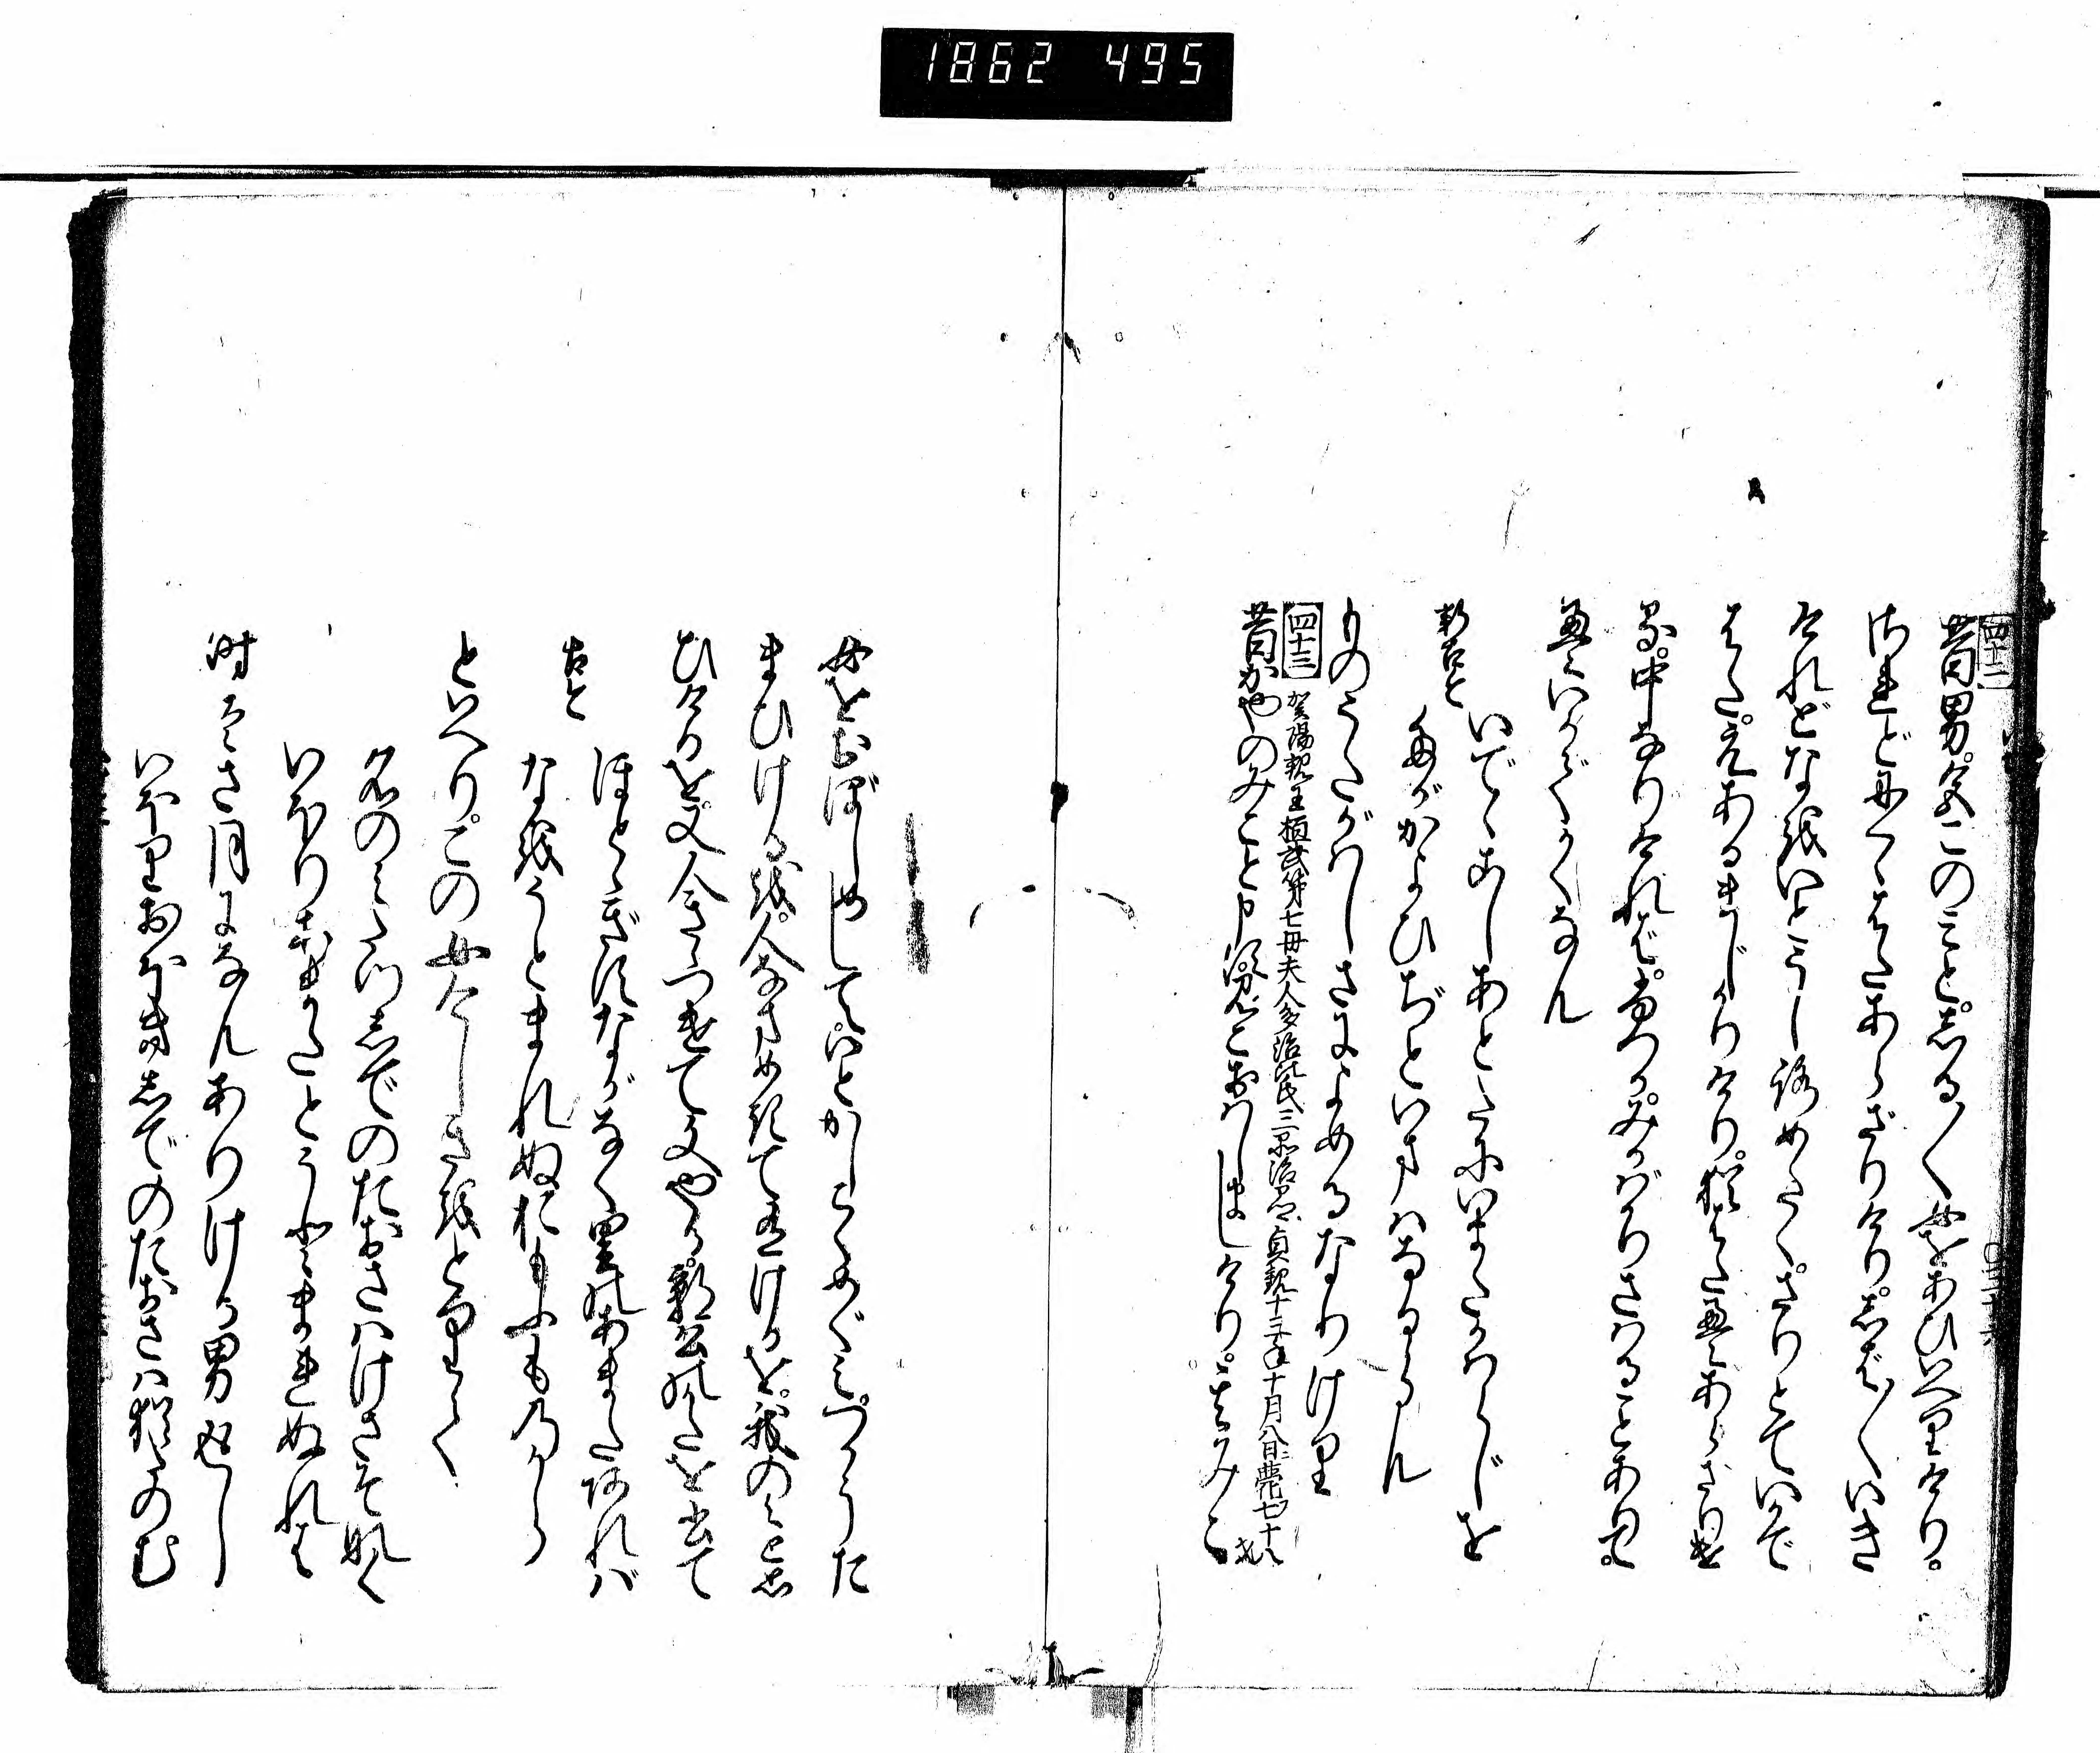 1862 495
四十二
昔男。色このみと。しる〳〵女をあひいへりけり。
されどにくゝはたあらざりけり。しば〳〵いき
けれどなをいとうしろめたく。さりとていかで
はた。えあるまじかりけり。猶はたえあらざりける
る。中なりければ。ふつかみかばかりさはることありて。
えいかでかくなん
新古今
いでゝこしあとだにいまだかはらじを
たがかよひぢといまはなるらん
ものうたがはしさによめるなりけり
四十三
賀陽親王桓武第七母夫人多治比氏三品治部卿貞観十三年十月八日薨七十八才
昔かやのみこと申須みこおはしましけり。其みこ
女をおぼしめして。いとかしこくめぐみつかうた
まひける越。人なまめきて有けるを。我のみと思
ひけるを。又人きゝつけて文やる。郭公形を書て
ほとゝぎすながなく里のあまたあれば
古今
なをうとまれぬおもふものから
といへり。この女けしきをとりて
名のみたつしでのたおさはけさぞなく
いほりあまたとうとまれぬれば
時はさ月になんありける男返し
いほりおほきしでのたおさは猶たのむ